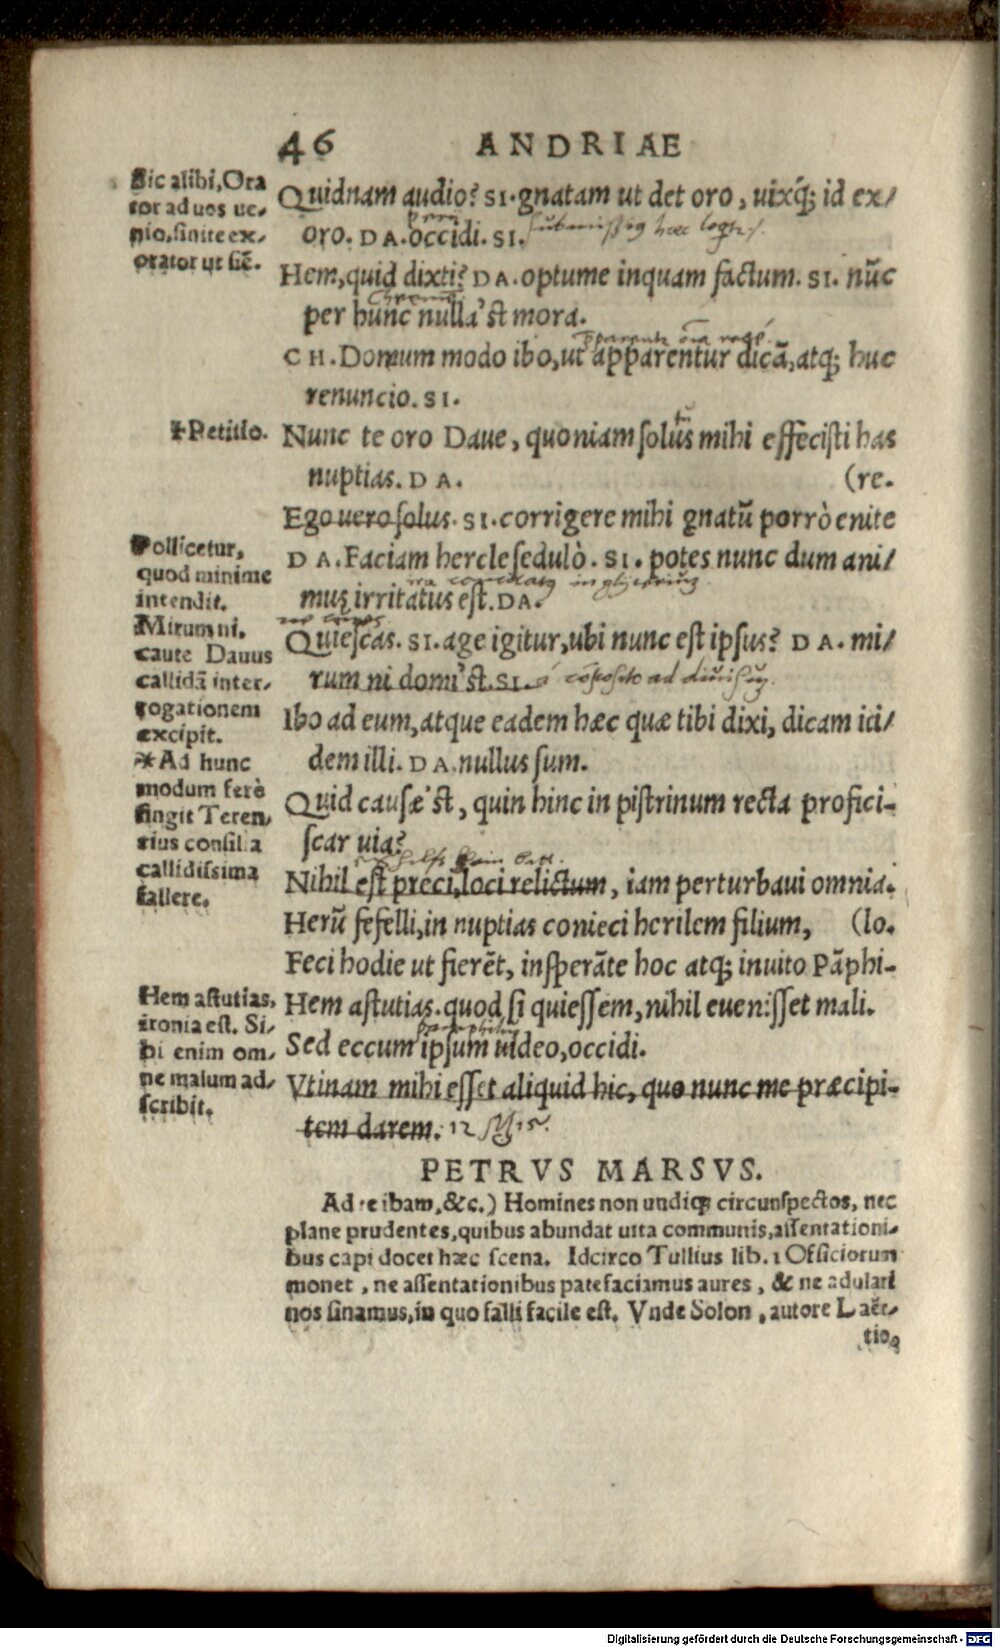 46 ANDRIAE
Sic alibi, Ora
tor ad uos ue,
nio, sinite ex,
orator ut siē.
Quidnam audio? SI. gnatam ut det oro, uixq́; id ex/
oro. DA. occidi. SI.
Hem, quid dixti? DA. optume inquam factum. SI. nūc
per hunc nulla'st mora.
CH. Domum modo ibo, ut apparentur dicā, atq; huc
renuncio. SI.
✝Petitio.
Nunc te oro Daue, quoniam solus mihi effecisti has
nuptias. DA. (re.
Ego uero solus. SI. corrigere mihi gnatū porrò enite
Pollicetur,
quod minime
intendit.
Mirum ni.
caute Dauus
callidā inter,
rogationem
excipit.
DA. Faciam hercle sedulò. SI. potes nunc dum ani/
mus irritatus est. DA.
Quiescas. SI. age igitur, ubi nunc est ipsus? DA. mi/
rum ni domi'st. SI.
Ibo ad eum, atque eadem hæc quæ tibi dixi, dicam iti/
dem illi. DA. nullus sum.
*Ad hunc
modum ferè
fingit Teren,
tius consilia
callidissima
fallere.
Quid causæ'st, quin hinc in pistrinum recta profici-
scar uia?
Nihil est preci loci relictum, iam perturbaui omnia.
Herū fefelli, in nuptias conieci herilem filium, (lo.
Feci hodie ut fierēt, insperāte hoc atq; inuito Pāphi-
Hem astutias,
ironia est. Si,
bi enim om,
ne malum ad,
scribit.
Hem astutias. quod si quiessem, nihil euenisset mali.
Sed eccum ipsum uideo, occidi.
Vtinam mihi esset aliquid hic, quo nunc me præcipi-
tem darem. 12
PETRVS MARSVS.
Ad te ibam, &c.) Homines non undiq; circunspectos, nec
plane prudentes, quibus abundat uita communis, assentationi-
bus capi docet hæc scena. Idcirco Tullius lib. 1 Officiorum
monet, ne assentationibus patefaciamus aures, & ne adulari
nos sinamus, in quo falli facile est. Vnde Solon, autore Laër-
tio,
Digitalisierung gefördert durch die Deutsche Forschungsgemeinschaft - DFG